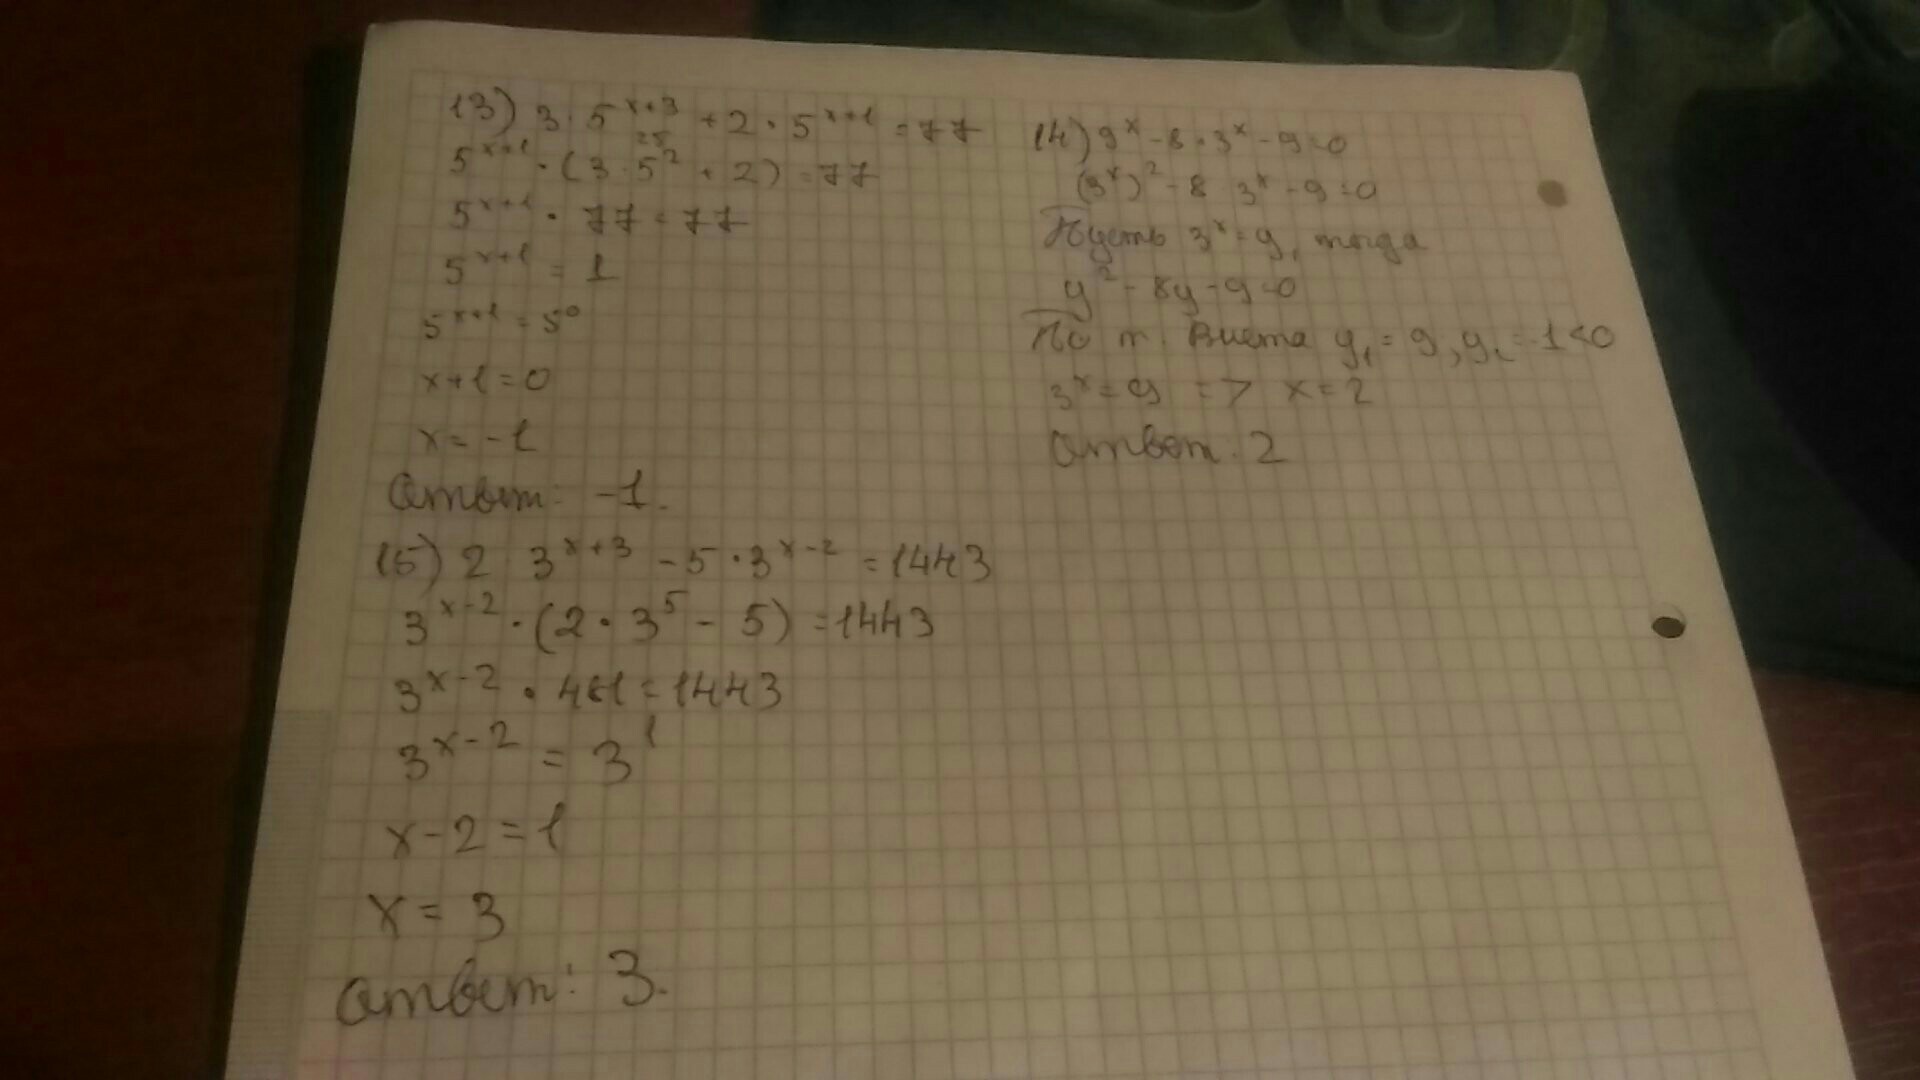 13) 3·5^(x+3) + 2·5^(x+1) = 77
25
5^(x+1)·(3·5^2 + 2) = 77
5^(x+1)·77 = 77
5^(x+1) = 1
5^(x+1) = 5^0
x+1=0
x = -1
Ответ: -1.
14) 9^x - 8·3^x - 9=0
(3^x)^2 - 8 3^x - 9=0
Пусть 3^x = y, тогда
y^2 - 8y - 9=0
По т. Виета y₁ = 9, y₂ = -1<0
3^x = 9 => x = 2
Ответ. 2
15) 2 3^(x+3) - 5·3^(x-2) = 1443
3^(x-2)·(2·3^5 - 5) = 1443
3^(x-2)·481 = 1443
3^(x-2) = 3^1
x-2 = 1
x = 3
Ответ: 3.